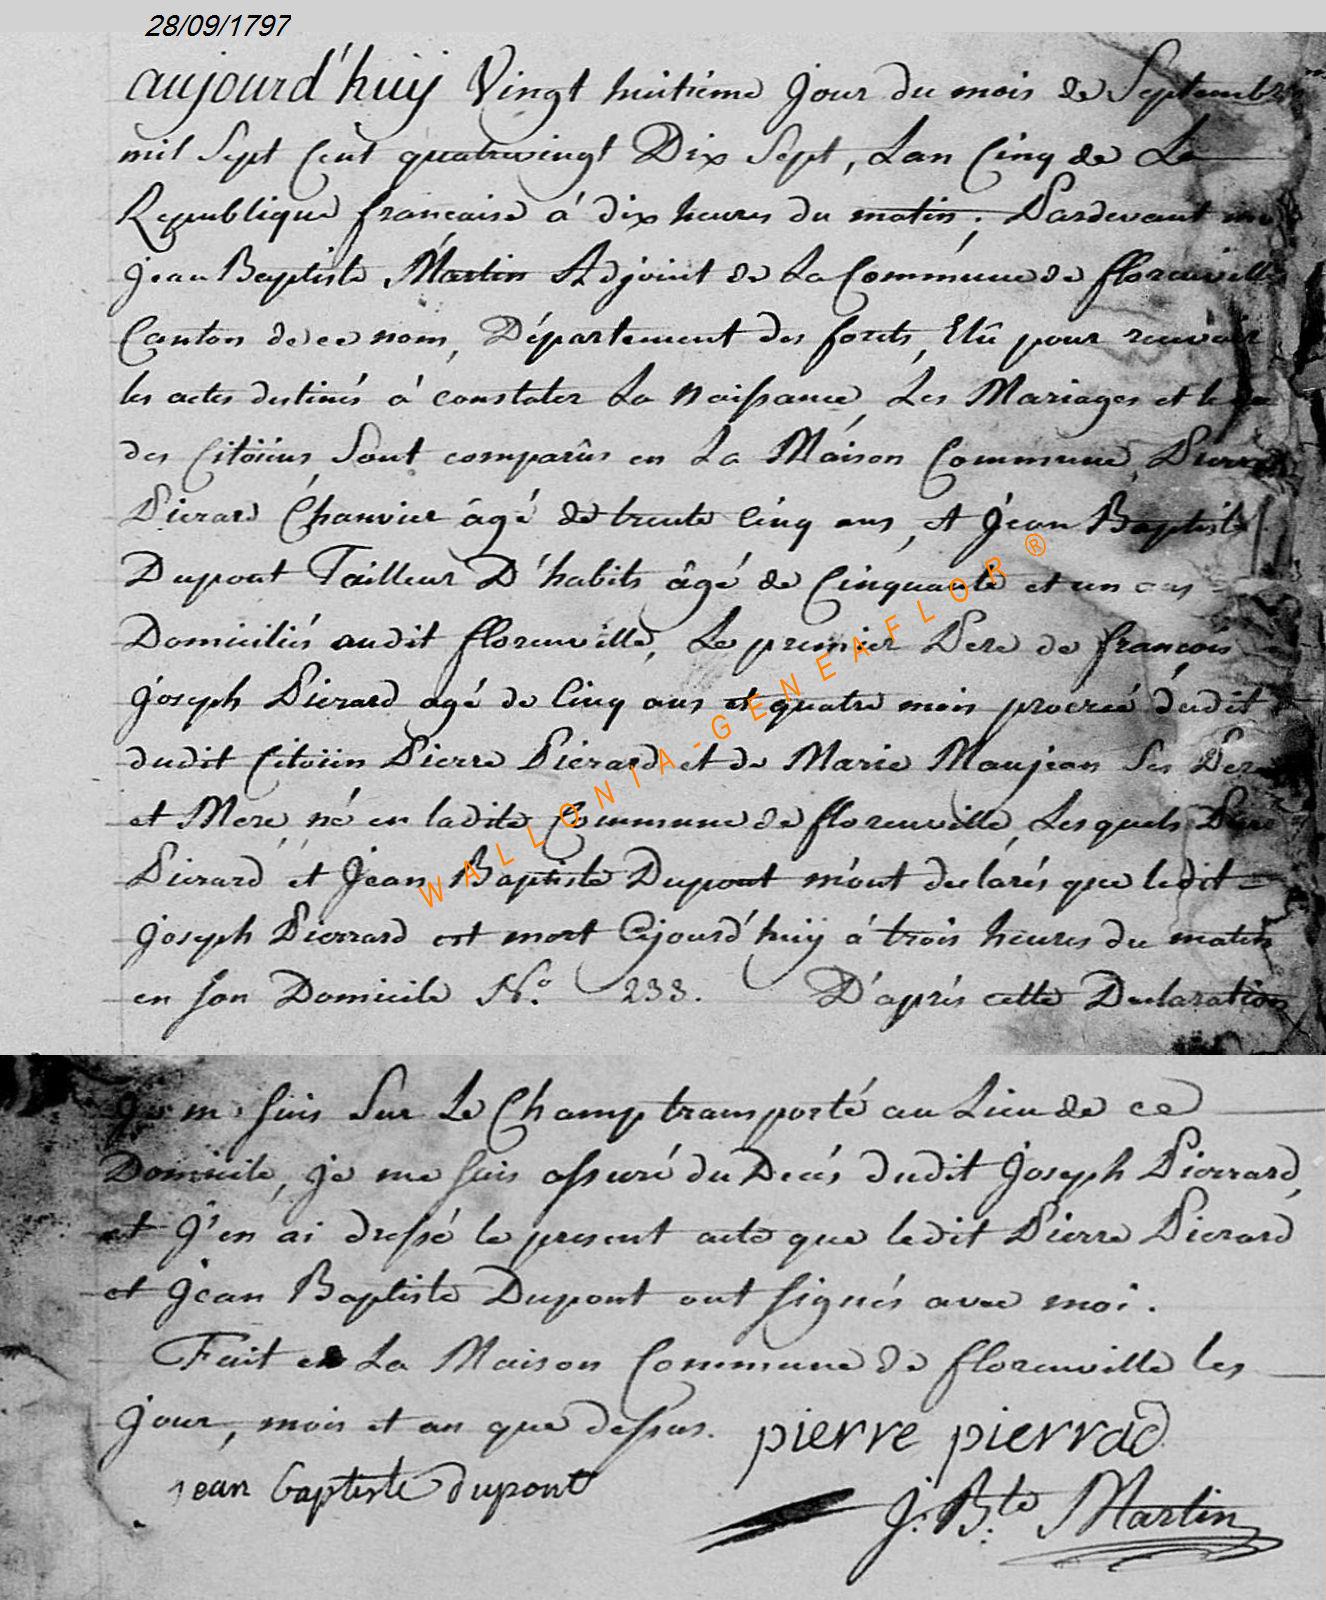 28/09/1797
aujourd'huij Vingt huitiéme Jour du mois de Septembre
mil Sept Cent quatrevingt Dix Sept, Lan Cinq de La
Republique francaise á dix heures du matin; Pardevant me
Jean Baptiste Martin Adjoint de La Commune de florenville
Canton de ce nom, Département des forets, Elû pour recevoir
les actes destinés á constater La Naissance, Les Mariages et le
des Citoiens Sont comparûs en La Maison Commune, Pierre
Pierard Chanvier âgé de trente Cinq ans, et Jean Baptiste
Dupont Tailleur D'habits âgé de Cinquante et un ans
Domiciliés audit florenville, Le premier Pere de francois
Joseph Pierard agé de Cinq ans et quatre mois procreé dudit
dudit Citoien Pierre Pierard et de Marie Maujean Ses Pere
et Mere, né en ladite Commune de florenville, Lesquels
Pierard et Jean Baptiste Dupont m'ont declarés que ledit
Joseph Pierrard est mort Cejourd'huij á trois heures du matin
en son Domicile N.o 238. D'aprés cette Declaration
Je me suis Sur Le Champ transporté au Lieu de ce
Domicile, je me suis assuré du Decés dudit Joseph Pierrard,
et J'en ai dressé le present acte que ledit Pierre Pierard
et Jean Baptiste Dupont ont signés avec moi.
Fait en La Maison Commune de florenville les
Jour, mois et an que dessus. pierre pierrad
jean baptiste dupont
J. B.te Martin
WALLONIA-GENEAFLOR ®